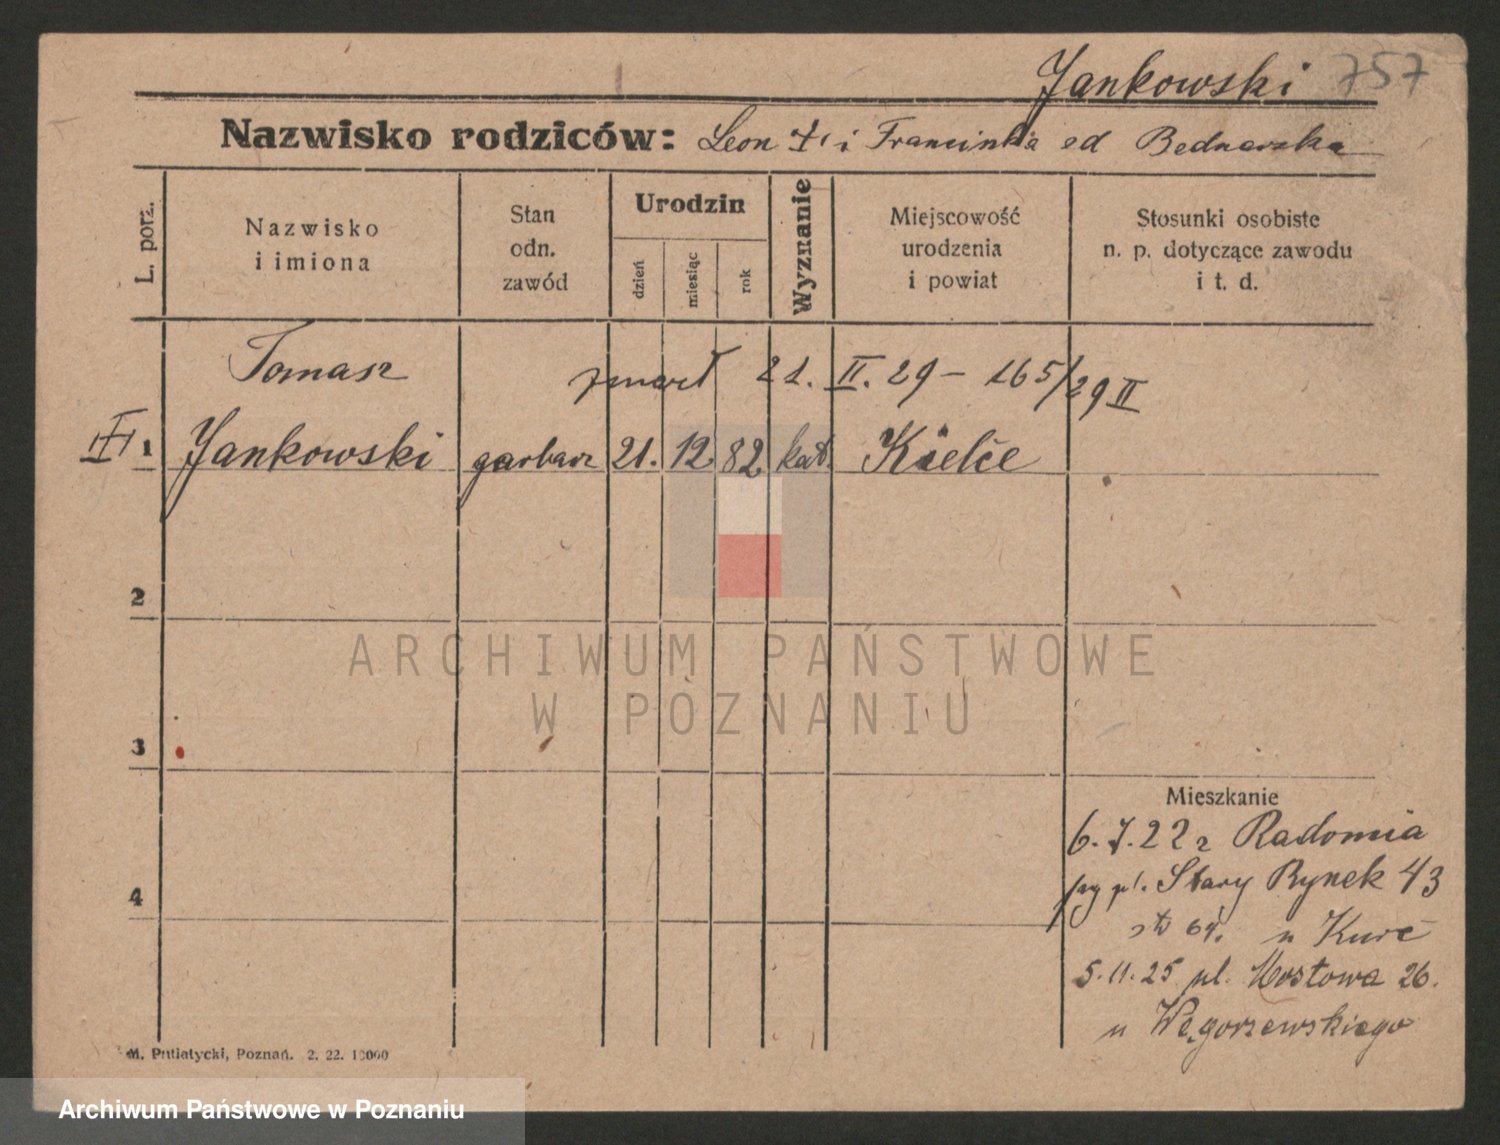 Jankowski 757
Nazwisko rodziców: Leon i Franciszka od Bednarska
L. porz.
Nazwisko
i imiona
Stan
odn.
zawód
Urodzin
dzień
miesiąc
rok
Wyznanie
Miejscowość
urodzenia
i powiat
Stosunki osobiste
n. p. dotyczące zawodu
i t. d.
Tomasz zmarł 21. II. 29 – 165/29 II
1 Jankowski garbarz 21. 12. 82 kat. Kielce
2
3
4
Mieszkanie
6. 7. 22 z Radomia
Stary Rynek 43
u Kurc
5.11.25 ul. Mostowa 26.
u Węgorzewskiego
M. Putiatycki, Poznań. 2. 22. 10000
ARCHIWUM PAŃSTWOWE
W POZNANIU
Archiwum Państwowe w Poznaniu